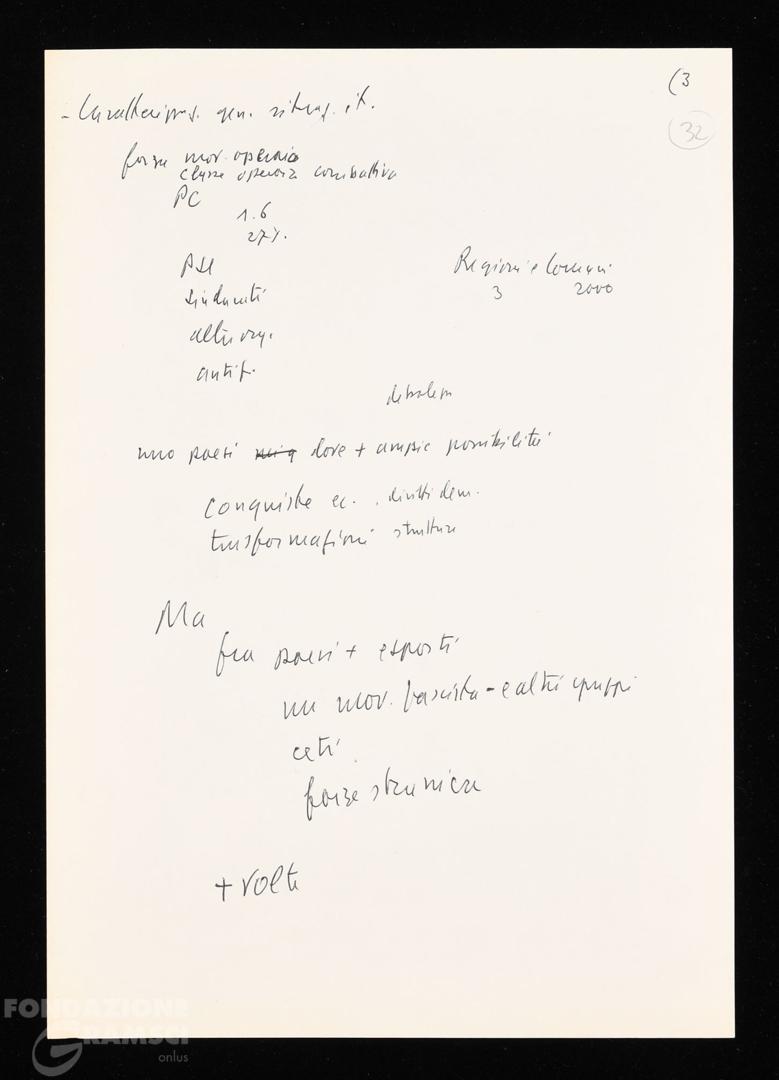 (3
32
- Caratteris. gen. situaz. it.
forza mov. operaio
classe operaia combattiva
PC
1.6
27%.
PSI
Regioni e Comuni
sindacati
3 2000
altre org.
antif.
uno paesi dove + ampie possibilità
conquiste ec. , diritti dem.
trasformazioni strutture
Ma
fra paesi + esposti
un mov. fascista - e altri gruppi
ceti
forze straniere
+ volte
FONDAZIONE
GRAMSCI
onlus